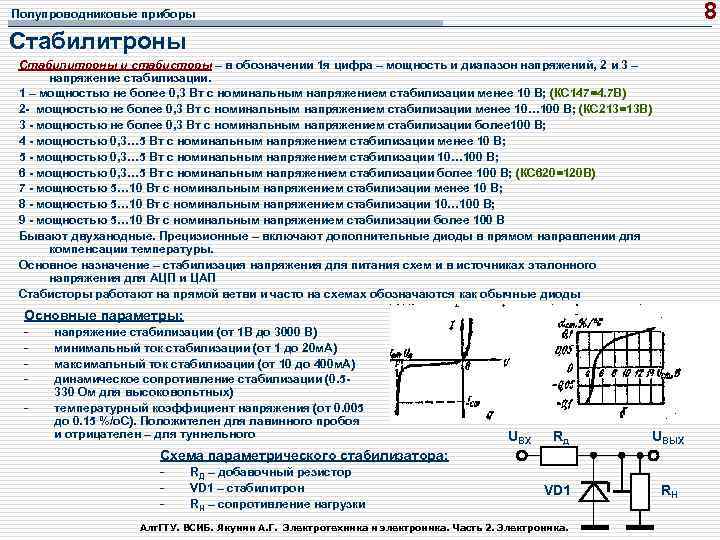 Полупроводниковые приборы
8
Стабилитроны
Стабилитроны и стабисторы – в обозначении 1я цифра – мощность и диапазон напряжений, 2 и 3 –
напряжение стабилизации.
1 – мощностью не более 0, 3 Вт с номинальным напряжением стабилизации менее 10 В; (КС147=4.7 В)
2 - мощностью не более 0, 3 Вт с номинальным напряжением стабилизации менее 10… 100 В; (КС213=13 В)
3 - мощностью не более 0, 3 Вт с номинальным напряжением стабилизации более100 В;
4 - мощностью 0, 3… 5 Вт с номинальным напряжением стабилизации менее 10 В;
5 - мощностью 0, 3… 5 Вт с номинальным напряжением стабилизации 10… 100 В;
6 - мощностью 0, 3… 5 Вт с номинальным напряжением стабилизации более 100 В; (КС620=120 В)
7 - мощностью 5… 10 Вт с номинальным напряжением стабилизации менее 10 В;
8 - мощностью 5… 10 Вт с номинальным напряжением стабилизации 10… 100 В;
9 - мощностью 5… 10 Вт с номинальным напряжением стабилизации более 100 В
Бывают двуханодные. Прецизионные – включают дополнительные диоды в прямом направлении для
компенсации температуры.
Основное назначение – стабилизация напряжения для питания схем и в источниках эталонного
напряжения для АЦП и ЦАП
Стабисторы работают на прямой ветви и часто на схемах обозначаются как обычные диоды
Основные параметры:
- напряжение стабилизации (от 1В до 3000 В)
- минимальный ток стабилизации (от 1 до 20 мА)
- максимальный ток стабилизации (от 10 до 400 мА)
- динамическое сопротивление стабилизации (0.5-
330 Ом для высоковольтных)
- температурный коэффициент напряжения (от 0.005
до 0.15 %/оС). Положителен для лавинного пробоя
и отрицателен – для туннельного
I
U
а
0,1
0,05
0
-0,05
-0,1
4 6 8 10 12 14
б
Схема параметрического стабилизатора:
- RД – добавочный резистор
- VD1 – стабилитрон
- RН – сопротивление нагрузки
UВХ
RД
UВЫХ
VD1
RН
АлтГТУ. ВСИБ. Якунин А.Г. Электротехника и электроника. Часть 2. Электроника.